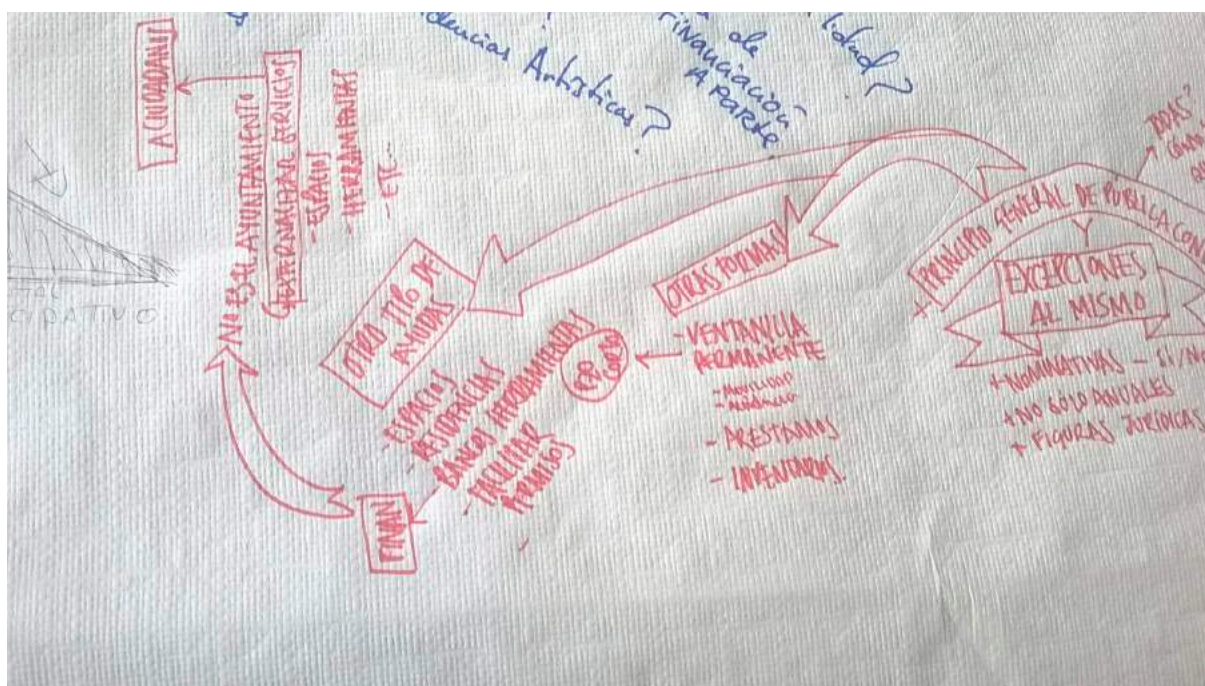 Artísticas?
de
Financiación
A PARTE
A CIUDADANOS
NO ES AYUNTAMIENTO
EXTERNALIZAR SERVICIOS
- ESPACIO
- HERRAMIENTAS
- ETC...
OTRO TIPO DE
AYUDAS
- ESPACIOS
- RESIDENCIAS
BANCOS HERRAMIENTAS
- FACILITAR
PERMISOS
FINAN
OTRAS FORMAS
- VENTANILLA
PERMANENTE
- MOVILIDAD
- PRESTAMOS
- INVENTARIOS.
+ PRINCIPIO GENERAL DE PUBLICA
EXCEPCIONES
AL MISMO
+ NOMINATIVAS - SI/NO
+ NO SOLO ANUALES
+ FIGURAS JURÍDICAS
TODAS?